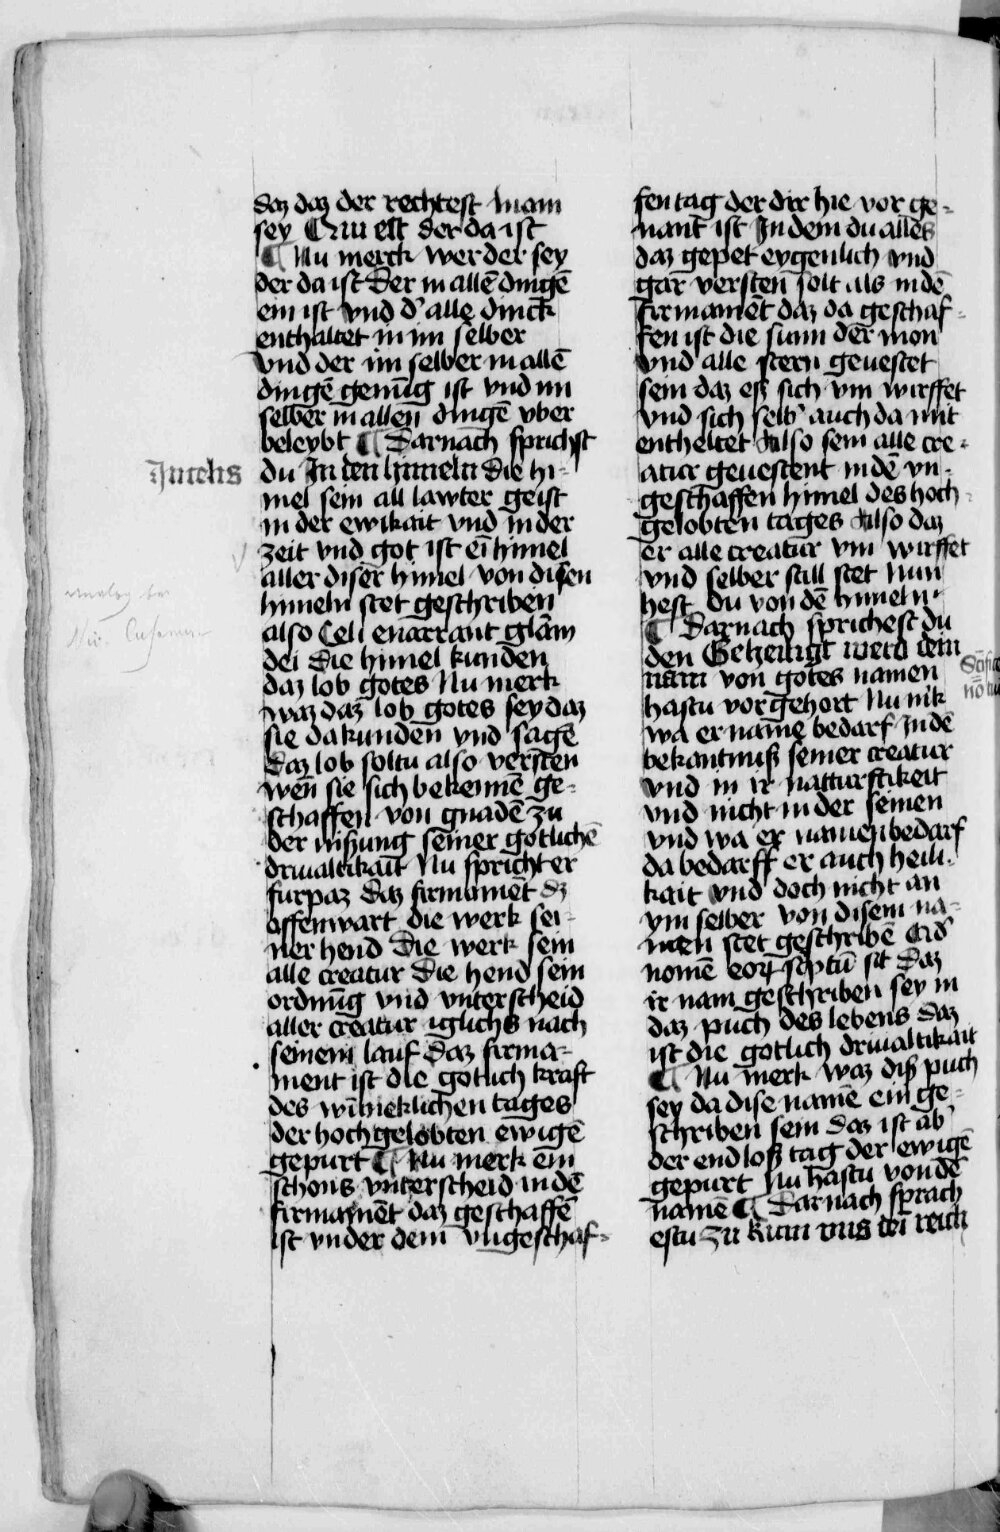 daz daz der rechtest nam
sey Qui est der da ist
¶ Nu merck wer der sey
der da ist Der in allē dingē
ein ist vnd d' alle dinck
enthaltet in im selber
vnd der im selber in allē
dingē genūg ist vnd im
selber in allen dingē vber
beleybt ¶ Darnach sprichst
In celis
du In den himeln Die hi-
mel sein all lawter geist
in der ewikait vnd in der
zeit vnd got ist eī himel
aller diser himel von disen
himeln stet geschriben
also Celi enarrant gl̄am
dei Die himel kunden
daz lob gotes Nu merk
waz daz lob gotes sey daz
sie da kunden vnd sagē
Daz lob soltu also versten
wen̄ sie sich bekennē ge-
schaffen von gnadē zu
der nißung seiner gotlichē
driualtikait Nu spricht er
furpaz Daz firmamēt dz
offenwart die werk sei-
ner hend Die werk sein
alle creatur Die hend sein
ordnūg vnd vnterscheid
aller creatur iglichs nach
seinem lauf Daz firma-
ment ist die gotlich kraft
des wi̅neklichen tages
der hochgelobten ewigē
gepurt ¶ Nu merk ein
schons vnterscheid in dē
firmamēt daz geschaffē
ist vnder dem vngeschaf-
fen tag der dir hie vor ge-
nant ist In dem du alles
daz gepet eygenlich vnd
gar versten solt als in dē
firmamēt daz da geschaf-
fen ist die sunn der mon
vnd alle stern geuestet
sein daz eß sich vm wirffet
vnd sich selb' auch da mit
entheltet Also sein alle cre-
atur geuestent in dē vn-
geschaffen himel des hoch-
gelobten tages Also daz
er alle creatur vm wirffet
vnd selber still stet Nun
hest du von dē himeln
¶ Darnach sprichest du
den Geheiligt werd dein
nam von gotes namen
hastu vor gehort Nu m̄k
wa er namē bedarf In dē
bekantnuß seiner creatur
vnd in ir natturstikeit
vnd nicht in der seinen
vnd wa er namen bedarf
da bedarff er auch heili-
kait vnd doch nicht an
ym selber von disem na-
men stet geschribē Qd'
nomē eoꝝ sc̄ptū sit Daz
ir nam geschriben sey in
daz puch des lebens Daz
ist die gotlich driualtikait
¶ Nu merk waz diß puch
sey da dise namē ein ge-
schriben sein Daz ist ab'
der endloß tag der ewigē
gepurt Nu hastu von dē
namē ¶ Darnach sprach
estu zu kum vns dei reich